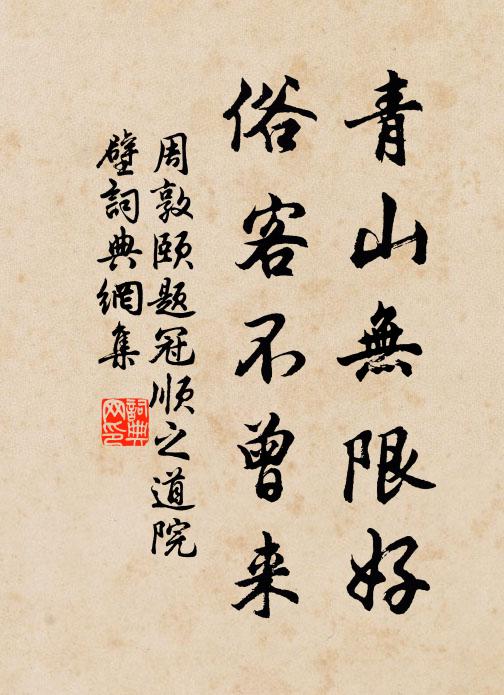 青山無限好
俗客不曾来
周敦颐题冠顺之道院
壁詞典網集
詞典
网印